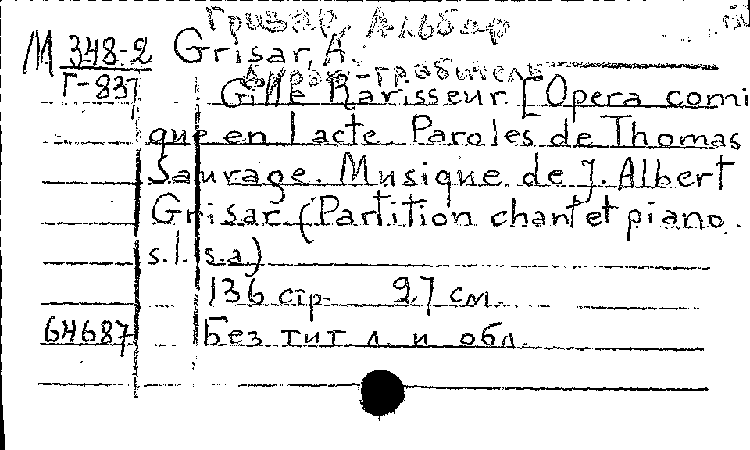 Гризар, Альбар
М 348-2 Grisar, A.
Г-837 Жиль-грабитель
Gille Ravisseur. [Opera comi
que en 1 acte. Paroles de Thomas
Sauvage. Musique de J. Albert
Grisar (Partition chant et piano.
s.l. s.a)
136 стр. 27 см.
64687 Без тит л. и обл.